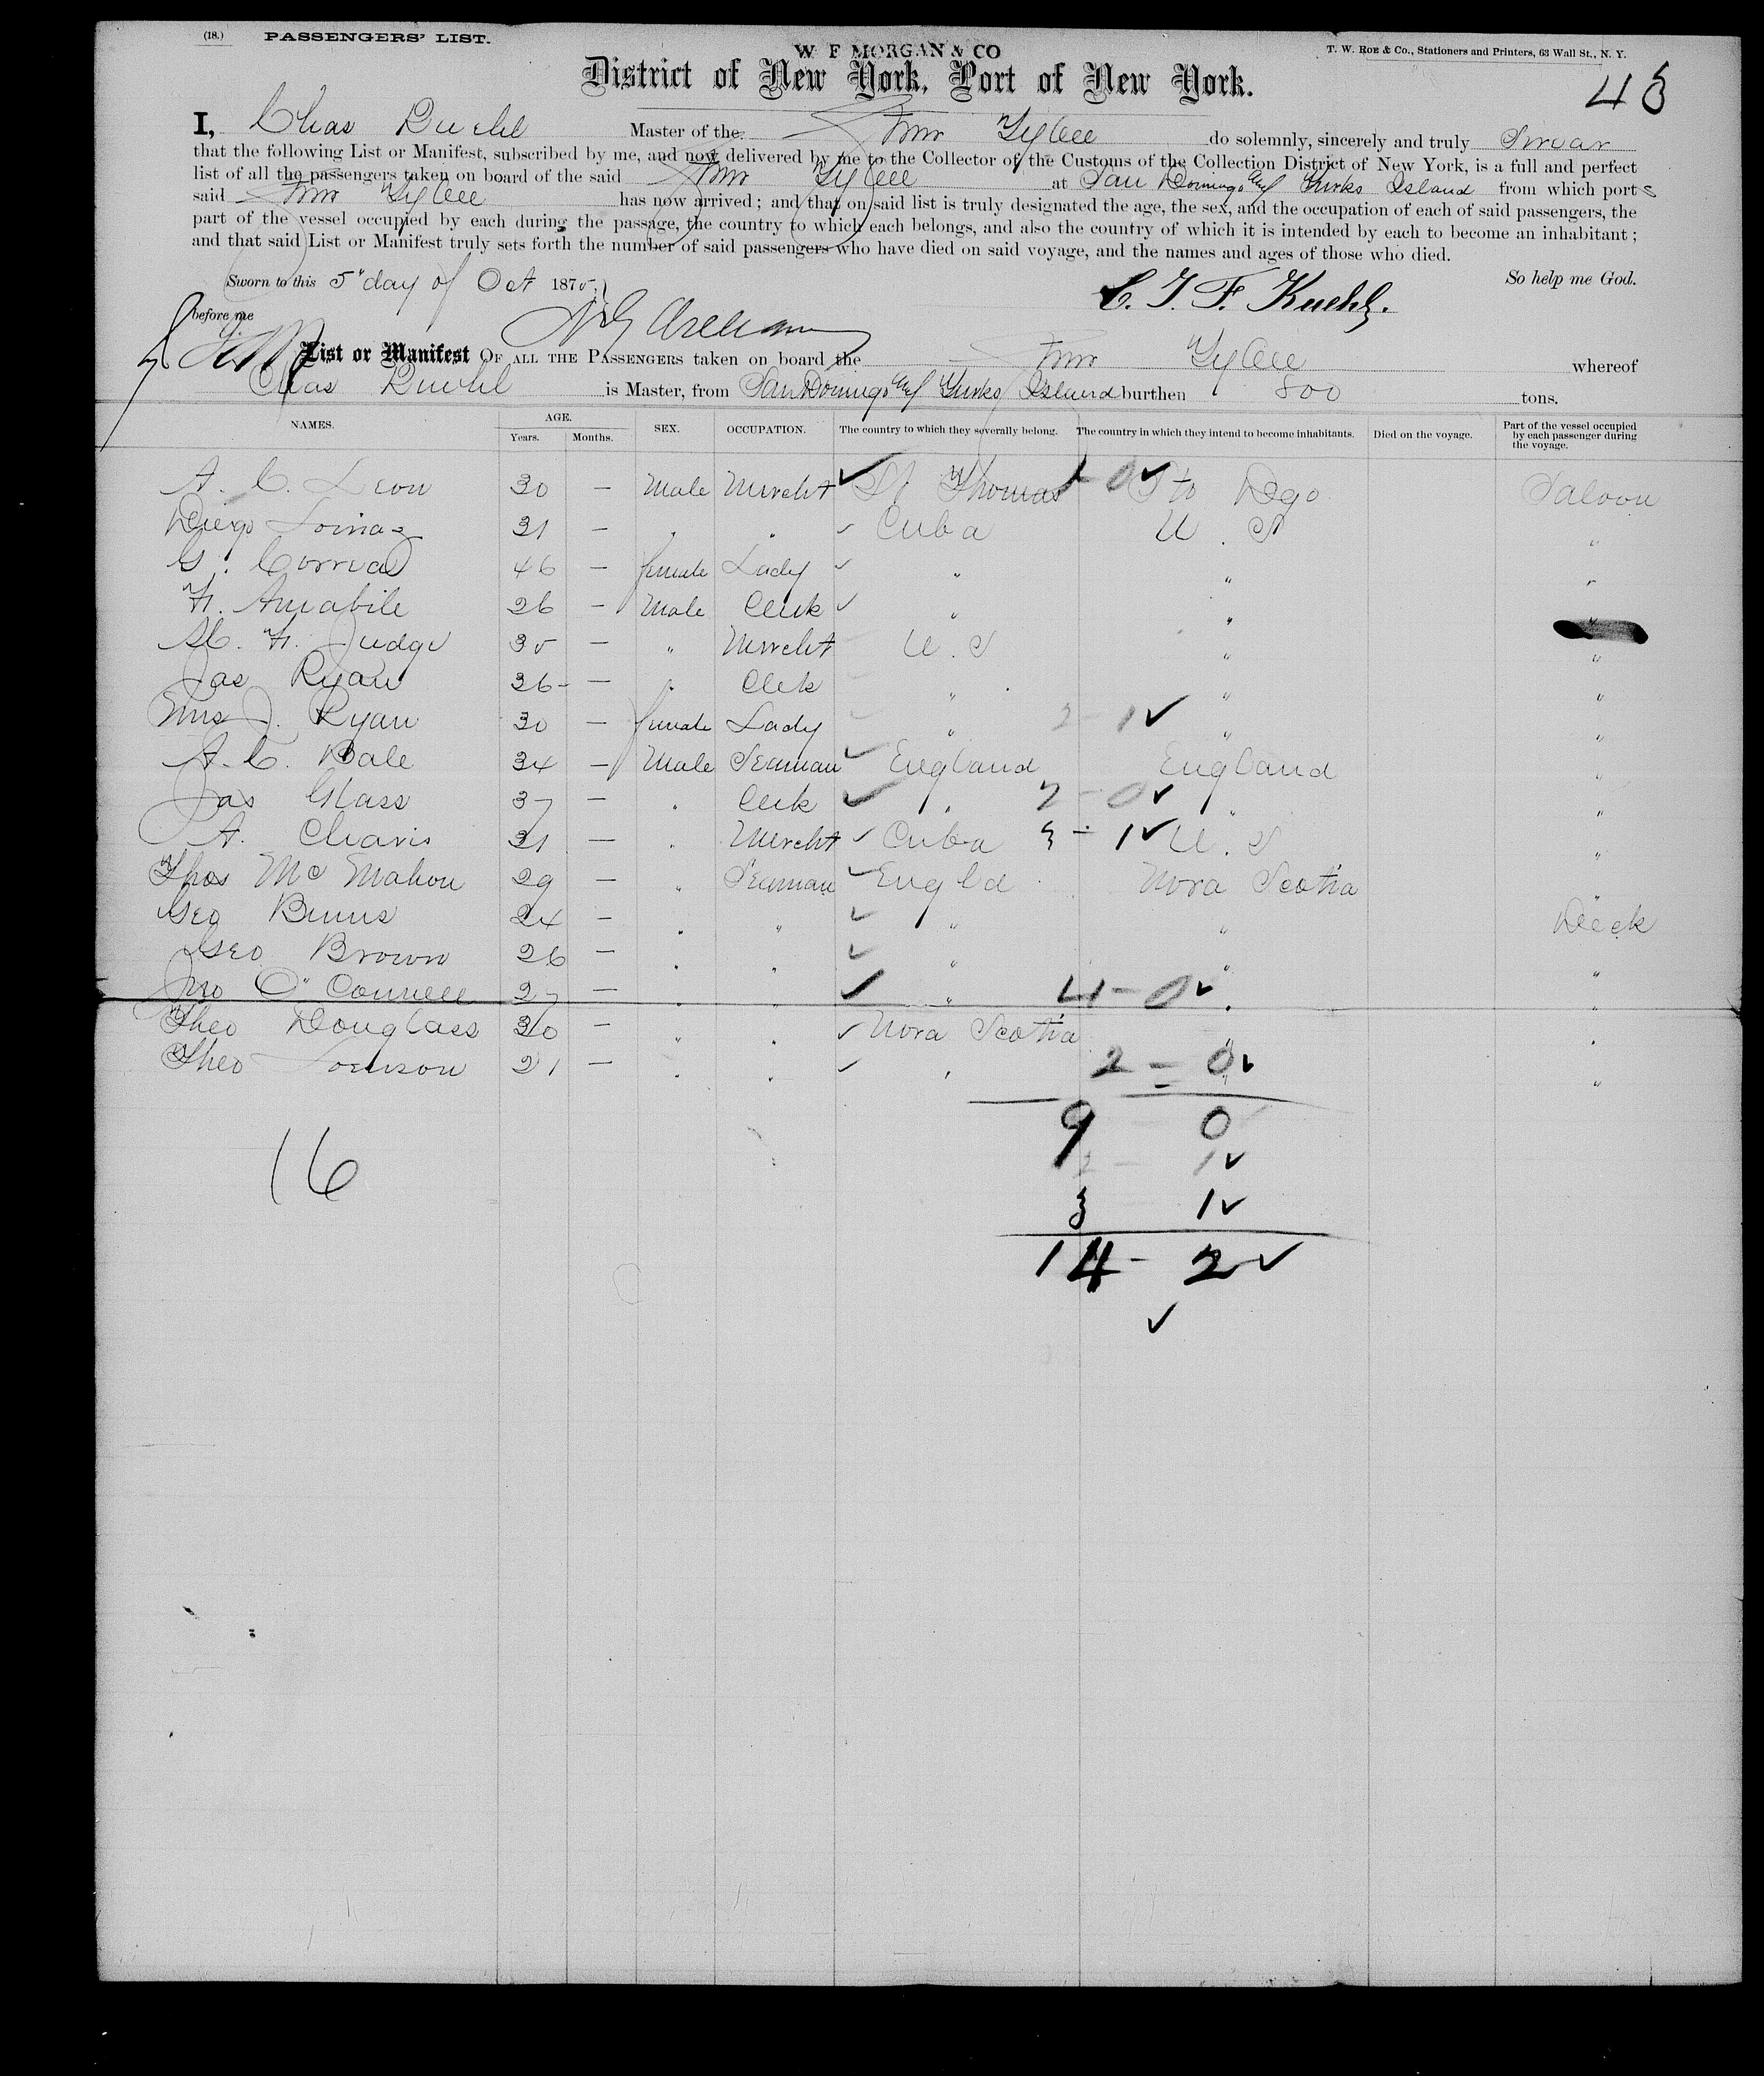 (18.) PASSENGERS' LIST.
W F MORGAN & CO
T. W. ROE & Co., Stationers and Printers, 63 Wall St., N. Y.
District of New York, Port of New York.
45
I, Chas Kuehl Master of the Stmr Tybee do solemnly, sincerely and truly Swear
that the following List or Manifest, subscribed by me, and now delivered by me to the Collector of the Customs of the Collection District of New York, is a full and perfect
list of all the passengers taken on board of the said Stmr Tybee at San Domingo and Turks Island from which ports
said Stmr Tybee has now arrived; and that on said list is truly designated the age, the sex, and the occupation of each of said passengers, the
part of the vessel occupied by each during the passage, the country to which each belongs, and also the country of which it is intended by each to become an inhabitant;
and that said List or Manifest truly sets forth the number of said passengers who have died on said voyage, and the names and ages of those who died.
Sworn to this 5" day of Oct 1875, So help me God.
C. T. F. Kuehl.
before me
List or Manifest OF ALL THE PASSENGERS taken on board the Stmr Tybee whereof
Chas Kuehl is Master, from San Domingo and Turks Island burthen 800 tons.
NAMES. AGE. Years. Months. SEX. OCCUPATION. The country to which they severally belong. The country in which they intend to become inhabitants. Died on the voyage. Part of the vessel occupied by each passenger during the voyage.
A. C. Leon 30 — Male Mercht ✓ St Thomas 1 - 0 ✓ Sto Dgo Saloon
Diego Loinaz 31 — " " ✓ Cuba U. S "
G. Correa 46 — female Lady ✓ " " "
F. Amabile 26 — Male Clerk ✓ " " "
M. F. Judge 35 — " Mercht U. S " "
Jas Ryan 36 — " Clerk " " "
Mrs J. Ryan 30 — female Lady " 2 - 1 ✓ " "
A. C. Bale 34 — Male Seaman ✓ England England "
Jas Glass 37 — " Clerk ✓ " 2 - 0 ✓ " "
A. Chavis 31 — " Mercht ✓ Cuba 3 - 1 ✓ U. S "
Thos Mc Mahon 29 — " Seaman ✓ Engld Nova Scotia "
Geo Burns 24 — " " ✓ " " Deck
Geo Brown 26 — " " ✓ " " "
Jno O'Connell 27 — " " ✓ " 4 - 0 ✓ " "
Theo Douglass 30 — " " ✓ Nova Scotia " "
Theo 21 — " " ✓ " 2 - 0 ✓ " "
9 0
2 - 1 ✓
16
3 1 ✓
14 - 2 ✓
✓